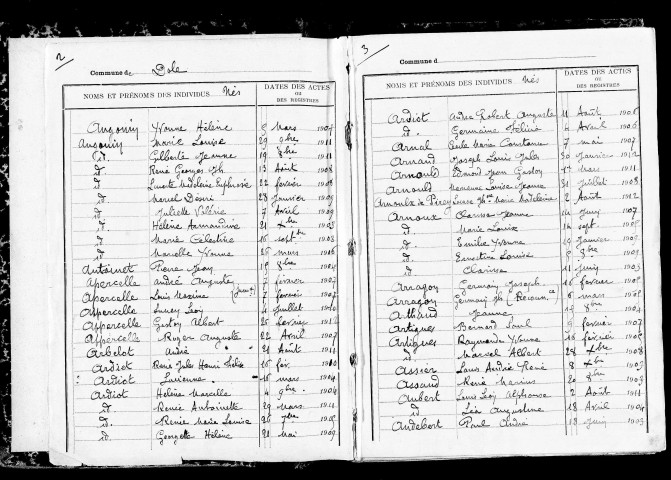 2
Commune de Dole
NOMS ET PRÉNOMS DES INDIVIDUS Nés
DATES DES ACTES
OU
DES REGISTRES
Yvonne Hélène 5 Mars 1904
Marie Louise 29 9bre 1911
id. Gilberte Jeanne 19 8bre 1911
id. René Georges 13 Août 1908
id. Madeleine 22 février 1908
id. Marcel 28 Janvier 1909
id. Juliette Valérie 7 Avril 1909
id. Hélène Armandine 21 1903
id. Marie Célestine 16 sept 1903
id. Marcelle Yvonne 25 mars 1916
Antoinet Pierre Jean 19 8bre 1904
Apercelle André Auguste février 1907
Apercelle Louis Maxime 7 février 1907
Appercelle Lucien Léon 4 Juillet 1910
Appercelle Gaston Albert 25 février 1912
Appercelle Roger Auguste 22 Avril 1907
Arbelot André 21 Août 1911
Ardiet René Jules Henri 10 fév. 1910
Ardiot Lucienne 18 mars 1904
Ardiot Hélène Marcelle 4 9bre 1904
id. Renée Antoinette 29 Mars 1911
id. Renée Marie Louise 26 7bre 1905
id. Georgette Hélène 21 Mai 1909
3
Commune d
NOMS ET PRÉNOMS DES INDIVIDUS Nés
DATES DES ACTES
OU
DES REGISTRES
Ardiot André Robert Auguste 11 Août 1905
id. Germaine Hélène 4 Avril 1906
Arnal Cécile Marie Constance 7 mai 1907
Armand Joseph Louis Jules 30 Janvier 1912
Arnould Jean Gaston 17 Mars 1911
Arnould Louise Jeanne 31 Juillet 1908
Arnoulx de Pirey Louise Marie Madeleine 2 Août 1912
Arnoux Clarisse Jeanne 14 Juin 1907
id. Marie Louise 14 sept. 1905
id. Emilie Yvonne 19 Janvier 1909
id. Ernestine Louise 9 9bre 1909
id. Clarisse 11 Juin 1903
Arragon Germain Joseph 16 février 1905
Arragon Germain 6 mars 1908
Arthaud Jeanne 19 8bre 1904
Artigues Bernard Paul 9 février 1907
Artigues Raymonde Yvonne 16 février 1905
id. Marcel Albert 28 1908
Assier Louis André René 8 1909
Assaud René Marius 20 8bre 1909
Aubert Louis Léon Alphonse 2 Août 1911
id. Léa Augustine 18 Avril 1904
Audebert Paul André 13 Juin 1903